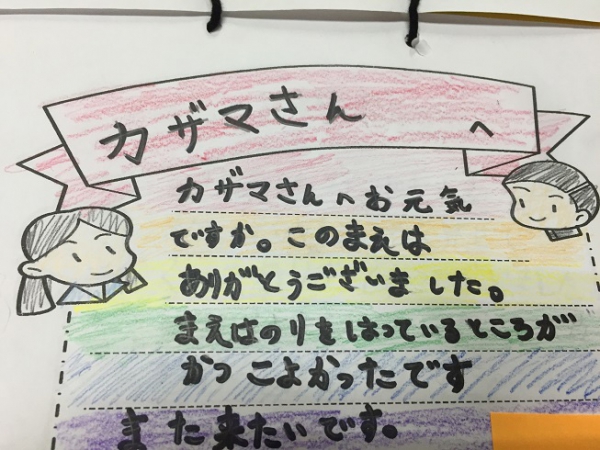 カザマさん へ
カザマさんへお元気
ですか。このまえは
ありがとうございました。
まえはのりをはっているところが
かっこよかったです
また来たいです。